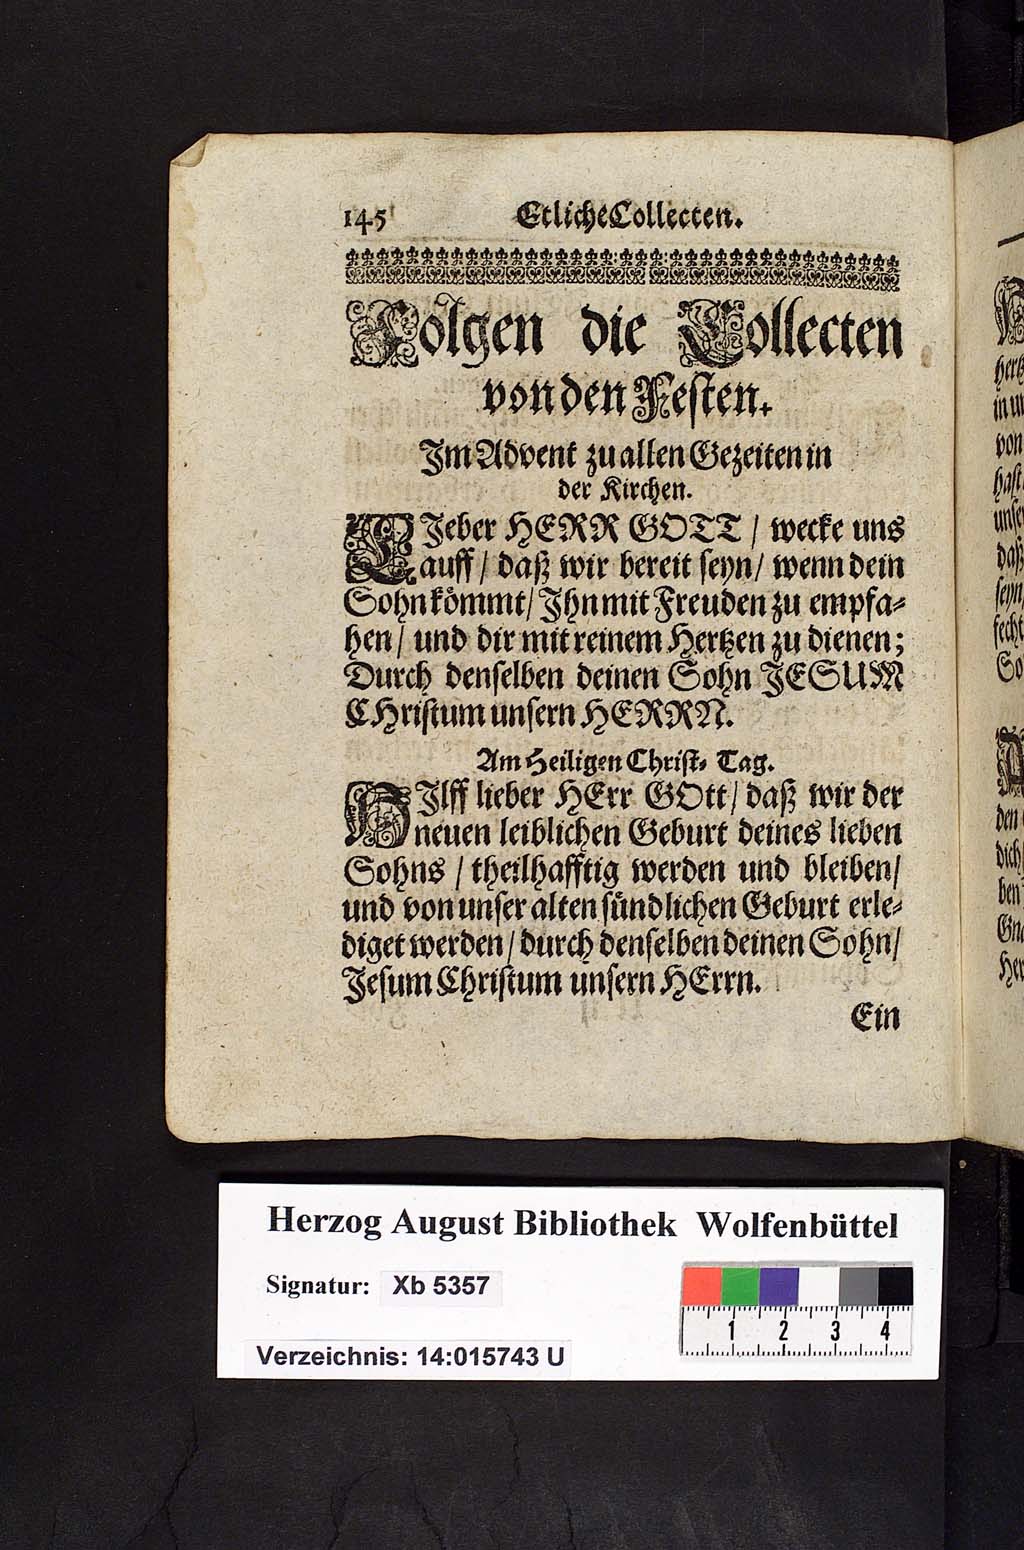 145 Etliche Collecten.
Folgen die Collecten
von den Festen.
Im Advent zu allen Gezeiten in
der Kirchen.
LIeber HERR GOTT / wecke uns
auff / daß wir bereit seyn / wenn dein
Sohn kömmt / Ihn mit Freuden zu empfa-
hen / und dir mit reinem Hertzen zu dienen;
Durch denselben deinen Sohn JESUM
CHristum unsern HERRN.
Am Heiligen Christ- Tag.
HIlff lieber HErr GOtt / daß wir der
neuen leiblichen Geburt deines lieben
Sohns / theilhafftig werden und bleiben /
und von unser alten sündlichen Geburt erle-
diget werden / durch denselben deinen Sohn /
Jesum Christum unsern HErrn.
Ein
hertz
in un
von
hast
unser
daß
seyn
fecht
So
den
dich
ben
Gna
Her
Herzog August Bibliothek Wolfenbüttel
Signatur: Xb 5357
Verzeichnis: 14:015743 U
1 2 3 4